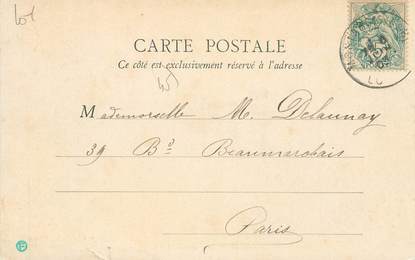 lot
CARTE POSTALE
Ce côté est exclusivement réservé à l'adresse
lot
Mademoiselle M. Delaunay
39 Bd Beaumarchais
Paris